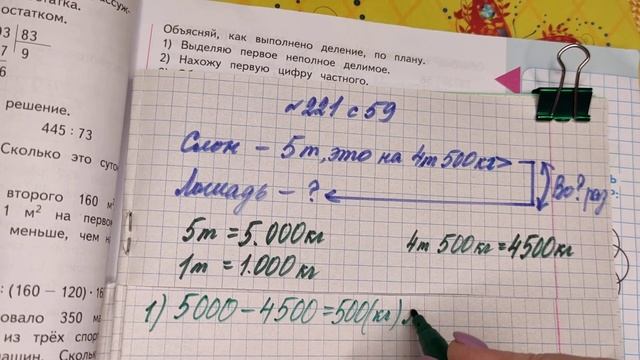 остатком.
83
9
решение.
445 : 73
Сколько это
второго 160 м²
1 м² на
меньше, чем
: (160 − 120) · 16
350 м
из трёх
Сколько
Объясняй, как выполнено деление, по плану.
1) Выделяю первое неполное делимое.
2) Нахожу первую цифру частного.
№221 с 59
Слон – 5т, это на 4т 500кг>
Лошадь – ?
Во ? раз
5т = 5.000кг
4т 500кг = 4500кг
1т = 1.000кг
1) 5000 – 4500 = 500(кг)